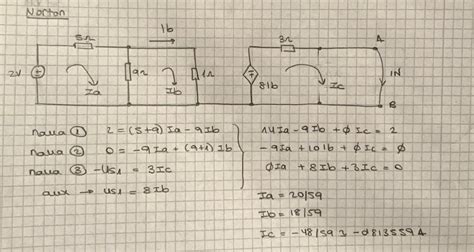 Norton
5Ω
1b
3Ω
A
2V
Ia
9Ω
Ib
1Ω
8Ib
Ic
IN
B
① 2 = (5+9) Ia - 9Ib
② 0 = -9Ia + (9+1) Ib
③ -Us1 = 3Ic
aux → Us1 = 8Ib
14Ia - 9Ib + ∅Ic = 2
-9Ia + 10Ib + ∅Ic = ∅
∅Ia + 8Ib + 3Ic = 0
Ia = 20/59
Ib = 18/59
Ic = -48/59